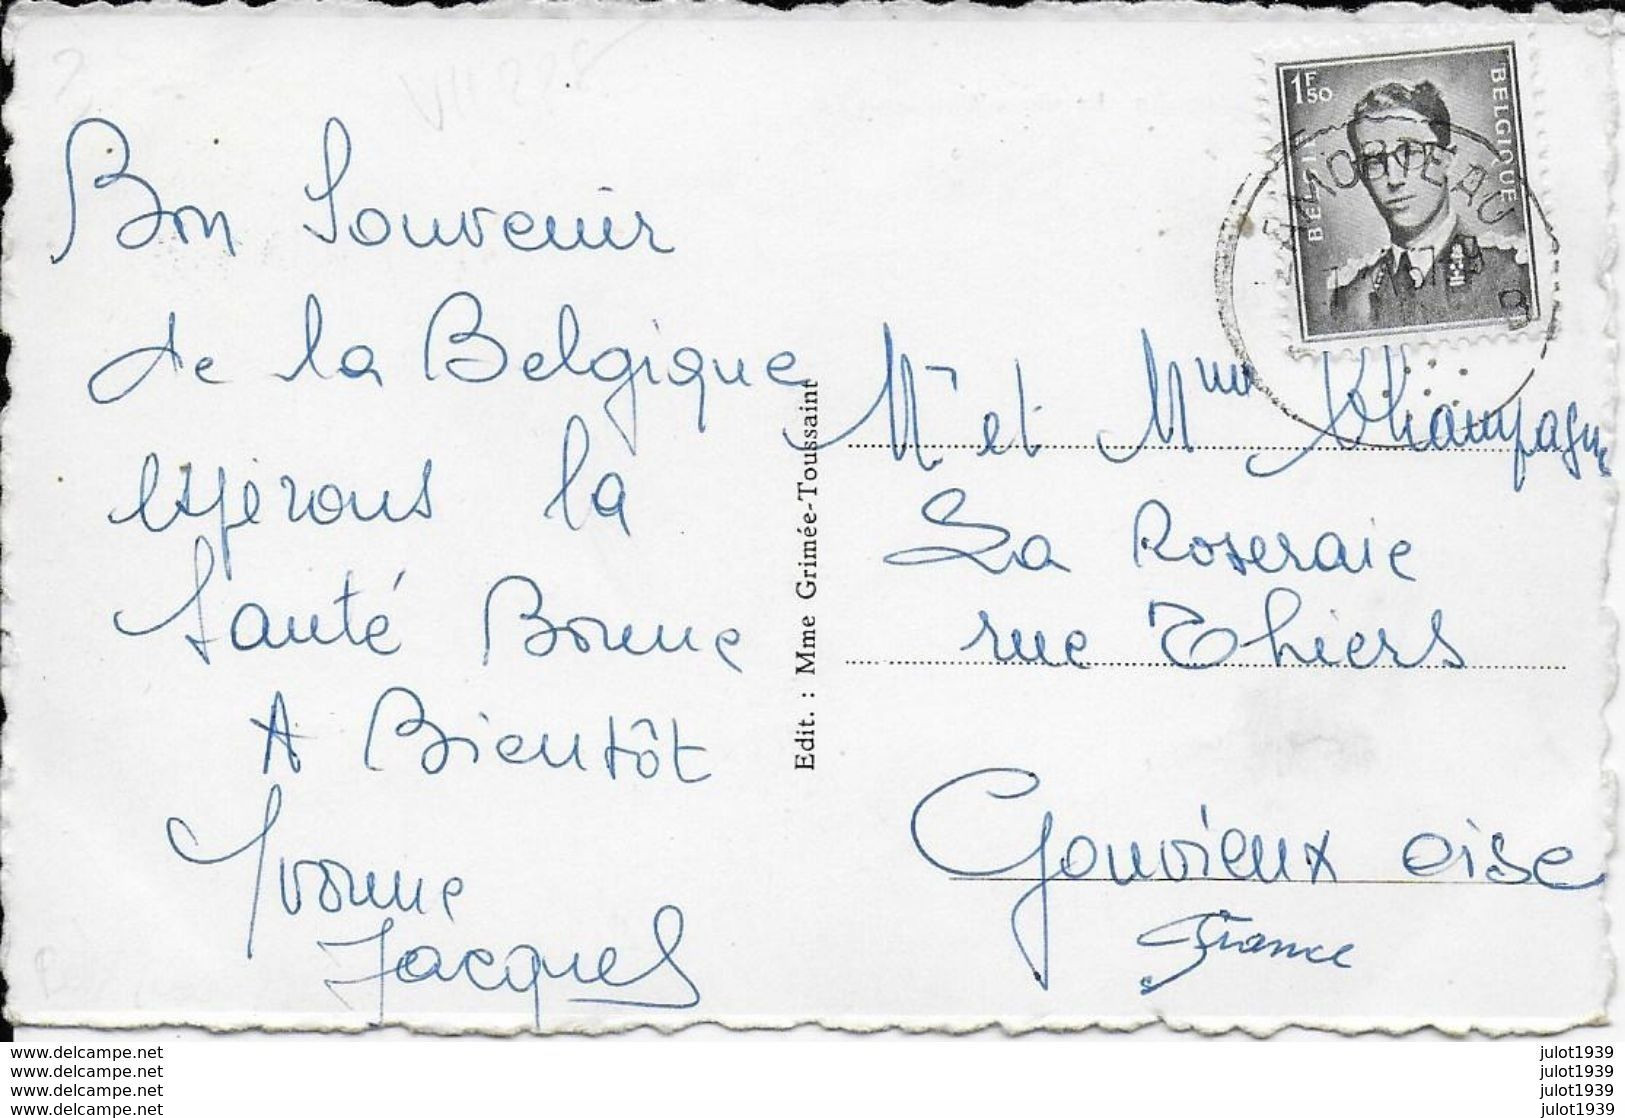 VII 228
Bon Souvenir
de la Belgique
espérons la
Santé Bonne
A Bientôt
Yvonne
Jacques
Edit. : Mme Grimée-Toussaint
1F50
BELGIE BELGIQUE
Mr et Mme Champagne
La Roseraie
rue Thiers
Gouvieux oise
France
www.delcampe.net
www.delcampe.net
www.delcampe.net
www.delcampe.net
julot1939
julot1939
julot1939
julot1939